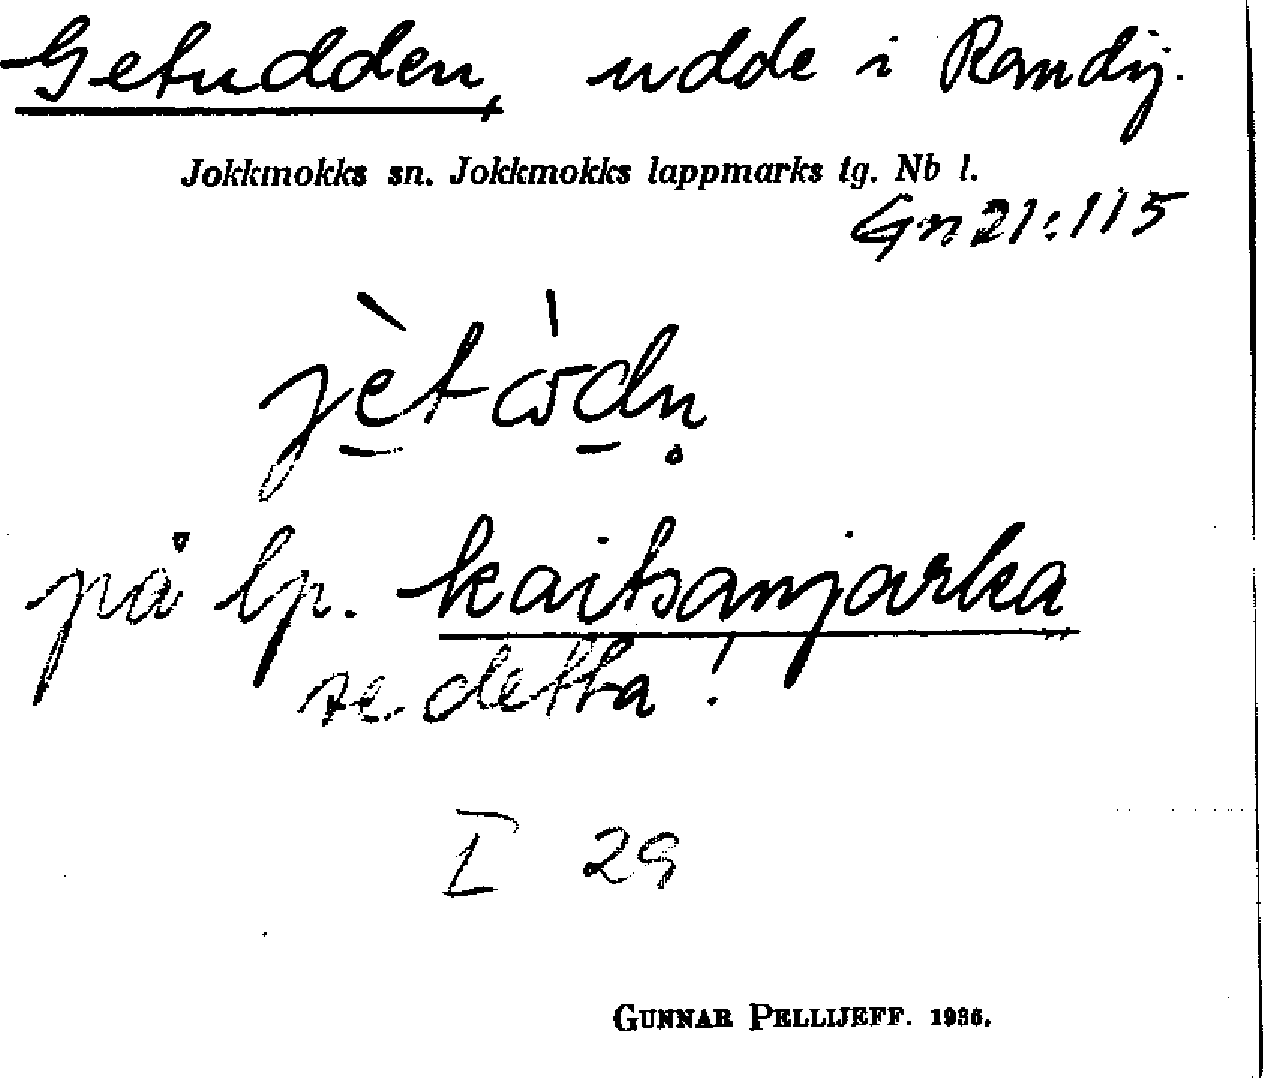 Getudden, udde i Randij.
Jokkmokks sn. Jokkmokks lappmarks tg. Nb l.
Gn 21:115
jèt òdn̥
på lp. kaitsanjarka
se detta!
I 29
GUNNAR PELLIJEFF. 1936.